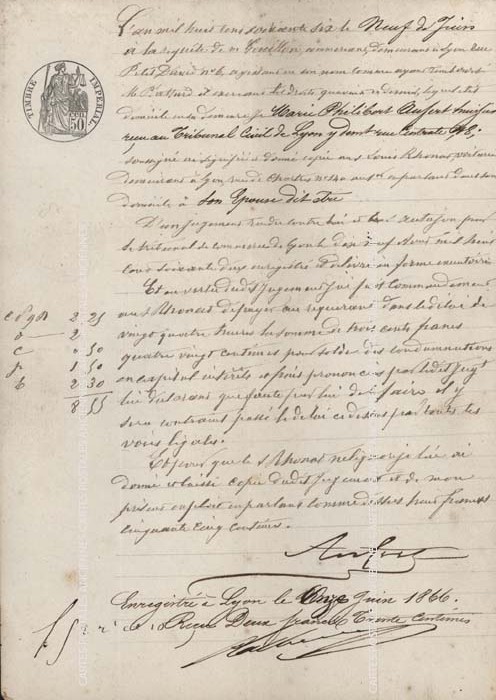 L'an mil huit cent soixante six le Neuf du Juin
à la requête de
Petit David n° 6, agissant en son nom comme ayant remboursé
M. et exerçant les droits de ce dernier, lequel élit
domicile en la demeure de Marie Philibert Aufert huissier
reçu au Tribunal Civil de Lyon y demt rue Centrale 48,
soussigné ai signifié et donné copie au s. Louis Rhonat
demeurant à Lyon, rue de Chartres en parlant dans son
domicile à son Epouse dit être
D'un Jugement rendu contre lui et par
le tribunal de commerce de Lyon le dix neuf mil huit
cent soixante deux enregistré et délivré en forme exécutoire
Et en vertu dudit Jugement j'ai fait Commandement
au s. Rhonat de payer au requérant dans le délai de
vingt quatre heures la somme de trois cents francs
quatre vingt centimes pour solde des condamnations
en capital intérêts et frais prononcés par ledit Jugt
lui déclarant que faute par lui de ce faire il y
sera contraint passé le délai ci dessus par toutes les
voies légales.
Et pour que le s. Rhonat n'en ignore je lui ai
donné et laissé copie dudit Jugement et de mon
présent exploit en parlant comme dessus huit francs
cinquante cinq centimes.
Aufert
Enregistré à Lyon le Onze Juin 1866
Reçu Deux francs Trente Centimes
TIMBRE IMPÉRIAL
50
2 25
2
c " 50
1 50
b 2 30
8 55